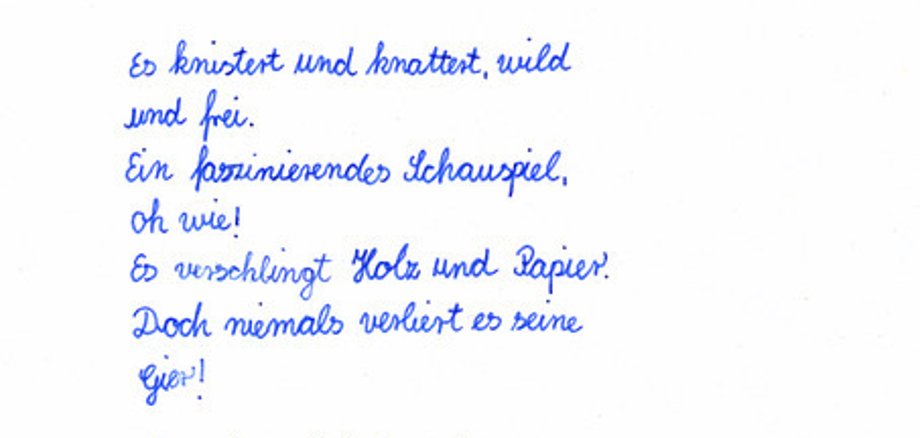 Es knistert und knattert, wild
und frei.
Ein faszinierendes Schauspiel,
oh wie!
Es verschlingt Holz und Papier.
Doch niemals verliert es seine
Gier!